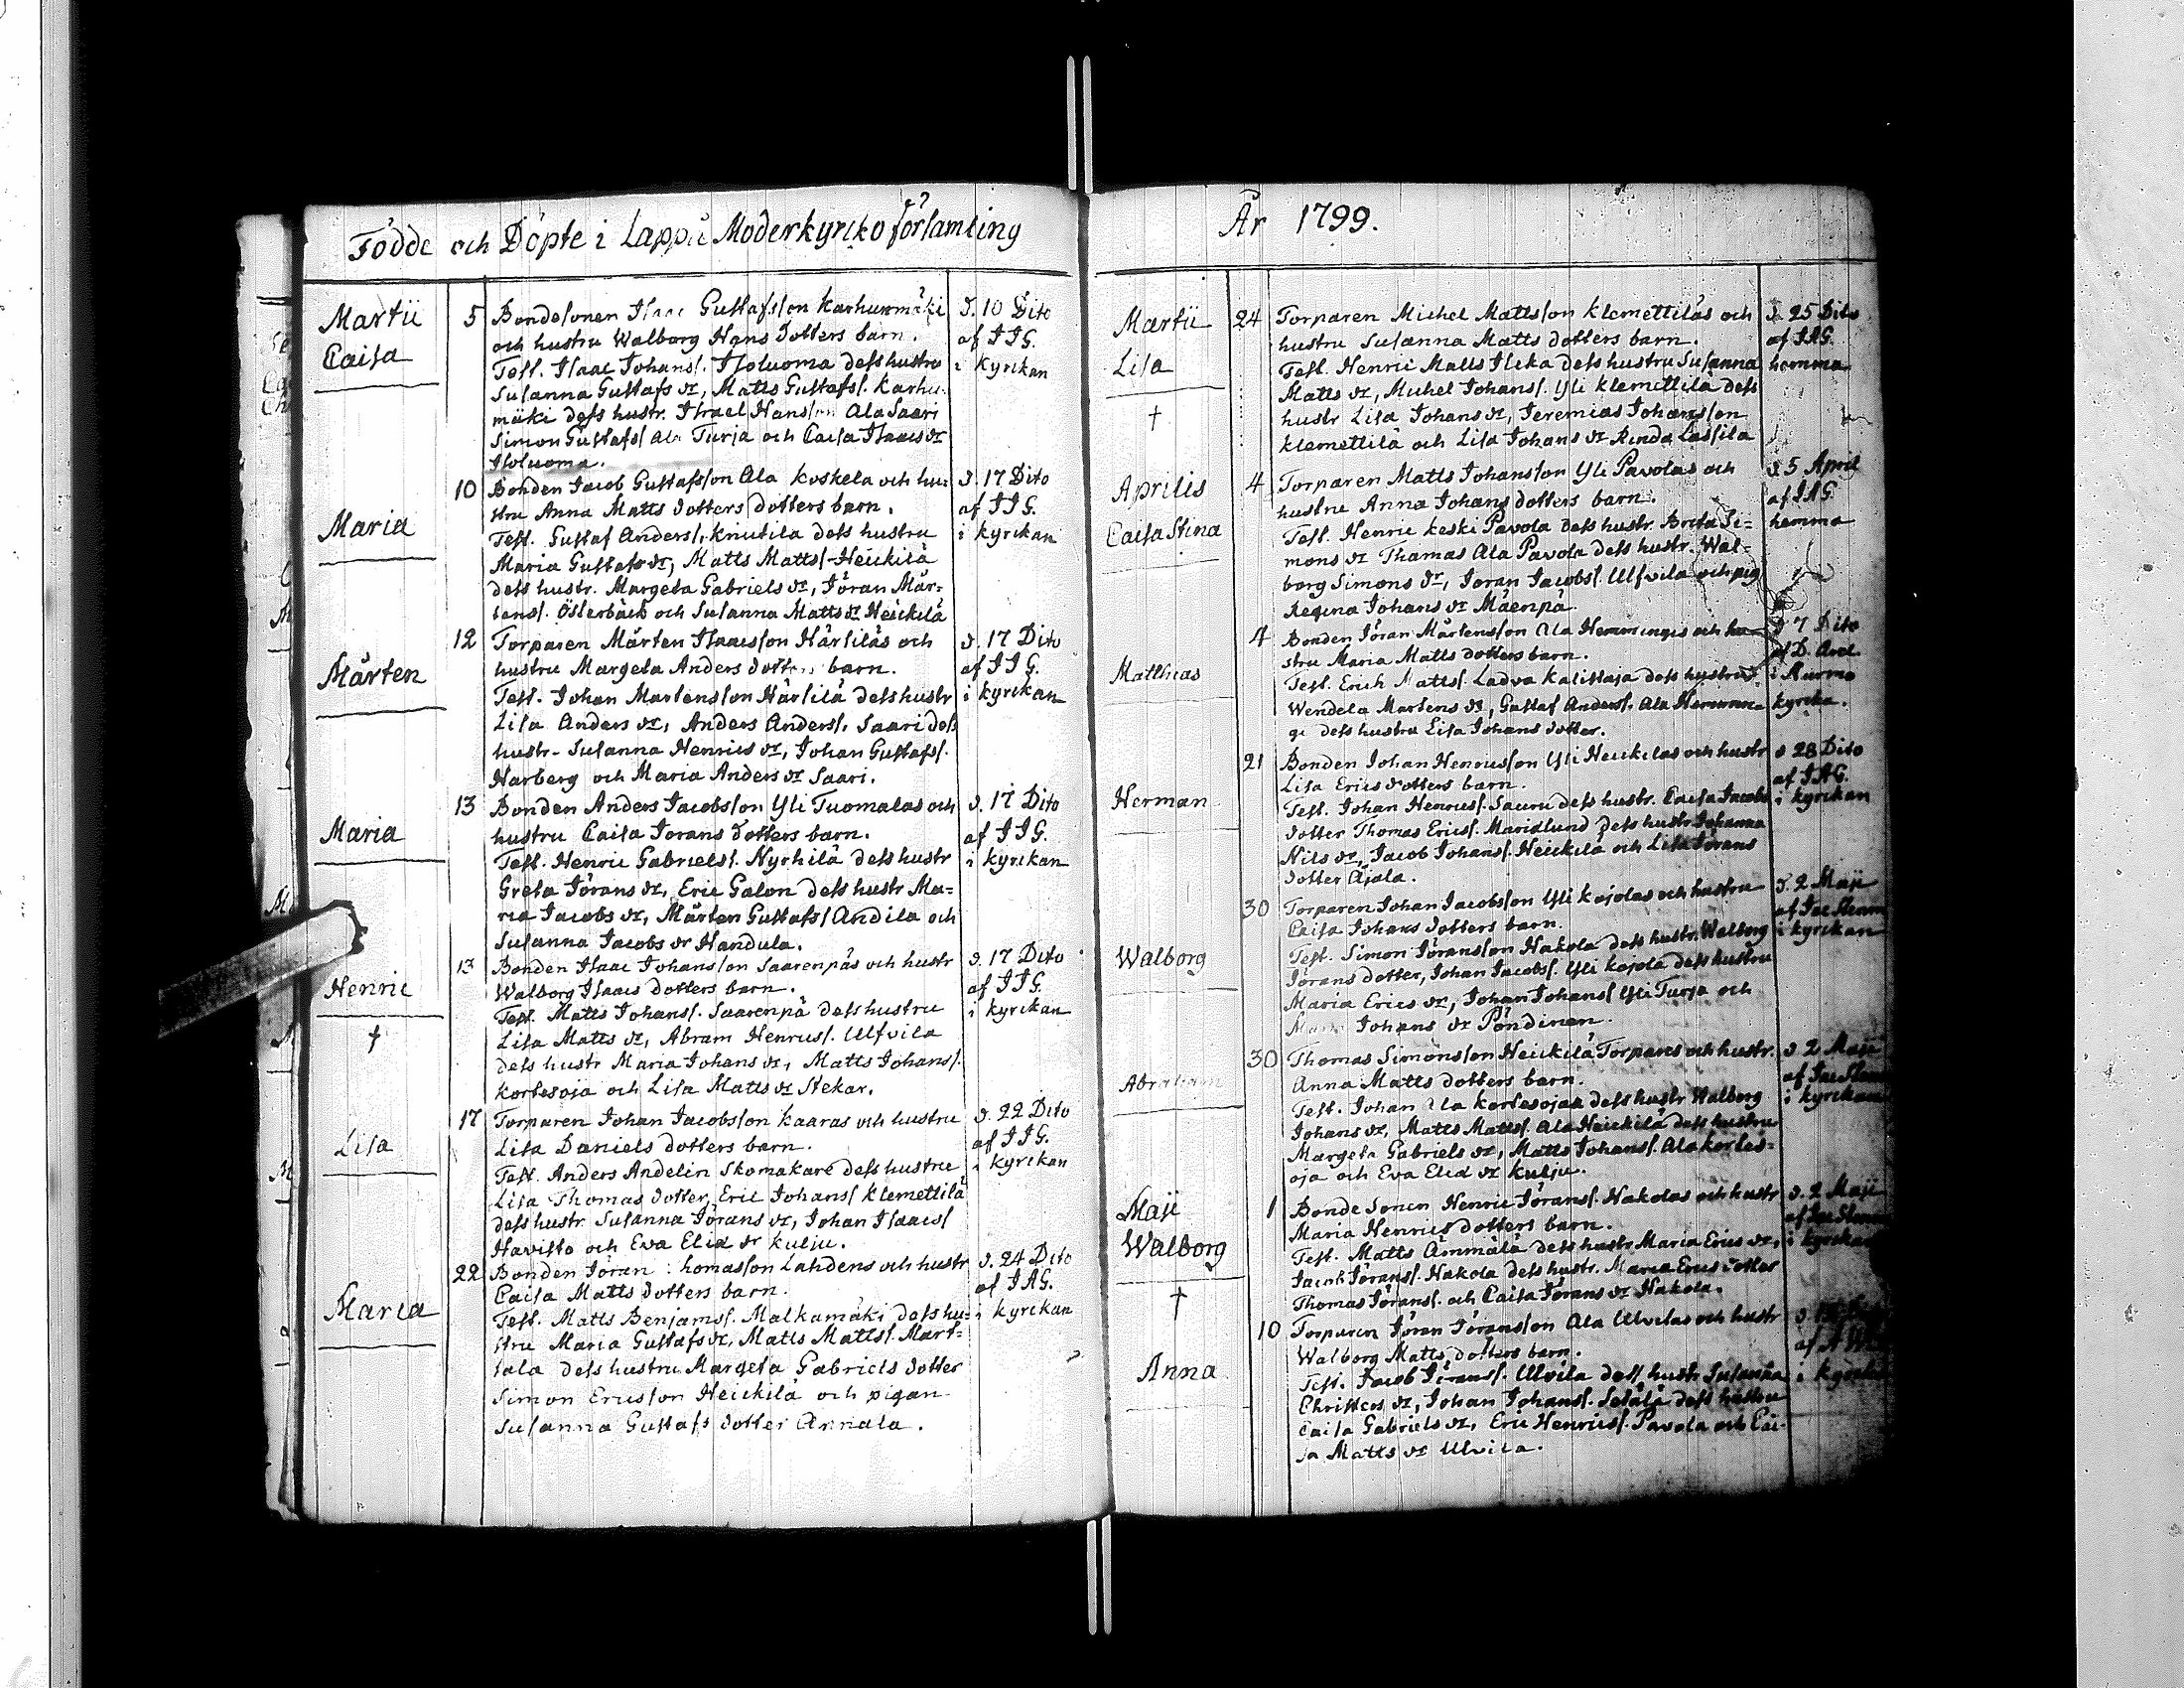 Födde och Döpte i Lappo Moderkyrko församling
Martii
Caisa
5 Bondesonen Isaac Gustafsson Karhunmäki
och hustru Walborg Hans dotters barn.
Test. Isaac Johans. Isoluoma dess hustru
Susanna Gustafs dr, Matts Gustafs. Karhu-
mäki dess hustr. Israel Hansson Ala Saari
Simon Gustafs Ala Turja och Caisa Isaacs dr
Isoluoma.
d. 10 Dito
af I I G.
i kyrckan
Maria
10 Bonden Jacob Gustafsson Ala Koskela och hu-
stru Anna Matts dotters dotters barn.
Test. Gustaf Anders. Knutila dess hustru
Maria Gustafs dr, Matts Matts. Heickilä
dess hustr. Margeta Gabriels dr, Jöran Mår-
tens. Österback och Susanna Matts dr Heickilä
d. 17 Dito
af I I G.
i kyrckan
Mårten
12 Torparen Mårten Isaacsson Härsiläs och
hustru Margeta Anders dotters barn.
Test. Johan Martensson Härsilä dess hustr
Lisa Anders dr, Anders Anders. Saari dess
hustr. Susanna Henrics dr, Johan Gustafs.
Harberg och Maria Anders dr Saari.
d. 17 Dito
af I I G.
i kyrckan
Maria
13 Bonden Anders Jacobsson Yli Tuomalas och
hustru Caisa Jorans dotters barn.
Test. Henric Gabriels. Nyrhilä dess hustr
Greta Jörans dr, Eric Galon dess hustr Ma-
ria Jacobs dr, Mårten Gustafs Andila och
Susanna Jacobs dr Handula.
d. 17 Dito
af I I G.
i kyrckan
Henric
†
13 Bonden Isaac Johansson Saarenpäs och hustr
Walborg Isaacs dotters barn.
Test. Matts Johans. Saarenpä dess hustru
Lisa Matts dr, Abram Henrics. Ulfvila
dess hustr Maria Johans dr, Matts Johans.
Kortesoja och Lisa Matts dr Stekar.
d. 17 Dito
af I I G.
i kyrckan
Lisa
17 Torparen Johan Jacobsson Kaaras och hustru
Lisa Daniels dotters barn.
Test. Anders Andelin Skomakare dess hustru
Lisa Thomas dotter, Eric Johans Klemettilä
dess hustr Susanna Jörans dr, Johan Isaacs
Havisto och Eva Elia dr Kulju.
d. 22 Dito
af I I G.
i kyrckan
Maria
22 Bonden Jöran homasson Lahdens och hustr
Caisa Matts dotters barn.
Test. Matts Benjams. Malkamäki dess hu-
stru Maria Gustafs dr, Matts Matts. Mart-
tala dess hustru Margeta Gabriels dotter
Simon Ericsson Heickilä och pigan
Susanna Gustafs dotter Annala.
d. 24 Dito
af I A G.
i kyrckan
År 1799.
Martii
Lisa
†
24 Torparen Michel Mattsson Klemettiläs och
hustru Susanna Matts dotters barn.
Test. Henric Matts Ilcka dess hustru Susanna
Matts dr, Michel Johans. Yli Klemettilä dess
hustr Lisa Johans dr, Jeremias Johansson
Klemettilä och Lisa Johans dr Rinda Lassila
d. 25 Dito
af I A G.
hemma
Aprilis
Caisa Stina
4 Torparen Matts Johansson Yli Pavolas och
hustru Anna Johans dotters barn.
Test. Henric Keski Pavola dess hustr. Breta Si-
mons dr Thomas Ala Pavola dess hustr. Wal-
borg Simons dr, Joran Jacobs. Ulfvila och pig
Regina Johans dr Mäenpä
d. 5 April
af I A G.
hemma
Matthias
4 Bonden Jöran Mårtensson Ala Hemminges och hu-
stru Maria Matts dotters barn.
Test. Erich Matts. Ladva Kalistaja dess hustru
Wendela Martens dr, Gustaf Anders. Ala Hemmin-
gi dess hustru Lisa Johans dotter.
d 7 Dito
af D.
i Nurmo
kyrcka.
Herman
21 Bonden Johan Henricsson Yli Heickiläs och hustr
Lisa Erics dotters barn.
Test. Johan Henrics. Sauru dess hustr. Caisa Jacobs
dotter Thomas Erics. Maridlund dess hustr Johanna
Nils dr, Jacob Johans. Heickilä och Lisa Jörans
dotter Äjälä.
d 28 Dito
af I A G.
i kyrckan
Walborg
30 Torparen Johan Jacobsson Yli Kojolas och hustru
Caisa Johans dotters barn.
Test. Simon Jöransson Hakola dess hustr. Walborg
Jörans dotter, Johan Jacobs. Yli Kojola dess hustru
Maria Erics dr, Johan Johans Yli Turja och
Johans dr Pöndinen.
d. 2 Maji
i kyrckan
Abraham
30 Thomas Simonsson Heickilä Torpares och hustr.
Anna Matts dotters barn.
Test. Johan Ala Kortesojaa dess hustr Walborg
Johans dr, Matts Matts. Ala Heickilä dess hustru
Margeta Gabriels dr, Matts Johans. Ala Kortes-
oja och Eva Elia dr Kulju.
d. 2 Maji
i kyrckan
Maji
Walborg
†
1 Bonde Sonen Henric Jörans. Hakolas och hustr
Maria Henrics dotters barn.
Test. Matts Ämmälä dess hustr Maria Erics dr,
Jacob Jörans. Hakola dess hustr. Maria Erics dotter
Thomas Jörans. och Caisa Jörans dr Hakola.
d. 2 Maji
i kyrckan
Anna
10 Torparen Jöran Jöransson Ala Ulvilas och hustr
Walborg Matts dotters barn.
Test. Jacob Jörans. Ulvila dess hustr Susanna
Christers dr, Johan Johans. Setälä dess hustru
Caisa Gabriels dr, Eric Henrics. Pavola och Cai-
sa Matts dr Ulvila.
i kyrckan